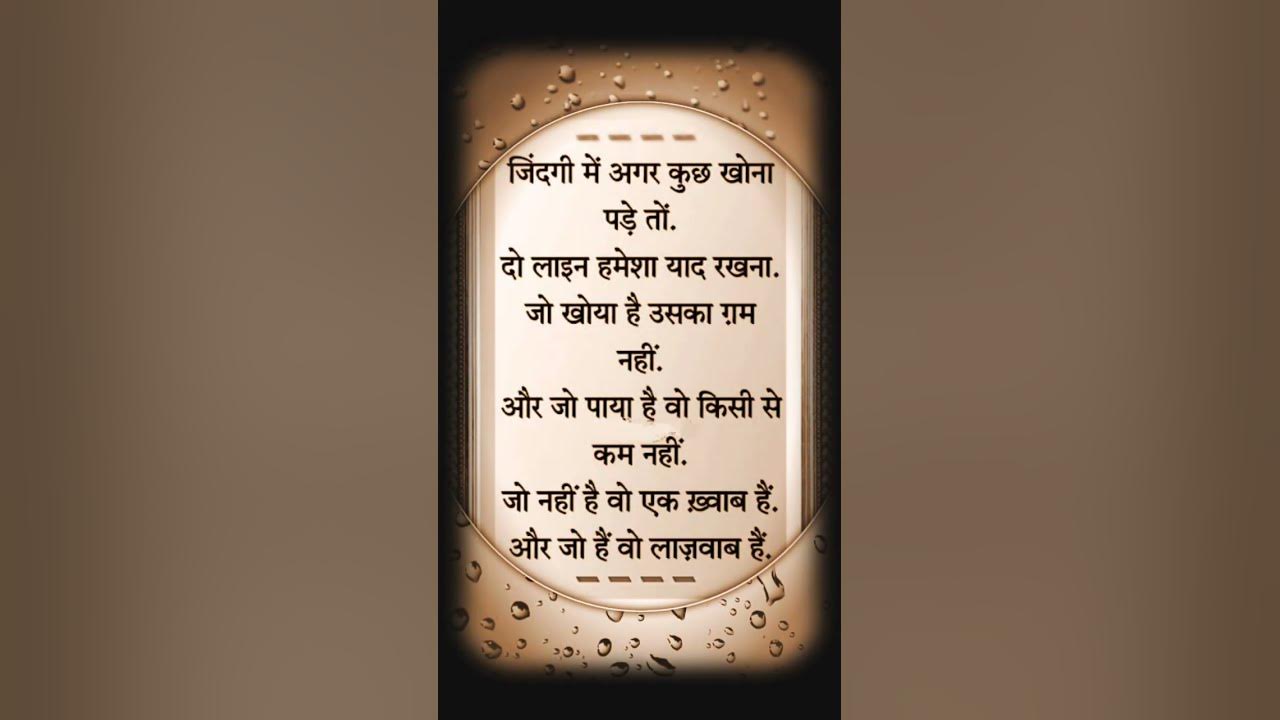 जिंदगी में अगर कुछ खोना
पड़े तों.
दो लाइन हमेशा याद रखना.
जो खोया है उसका ग़म
नहीं.
और जो पाया है वो किसी से
कम नहीं.
जो नहीं है वो एक ख़्वाब हैं.
और जो हैं वो लाज़वाब हैं.